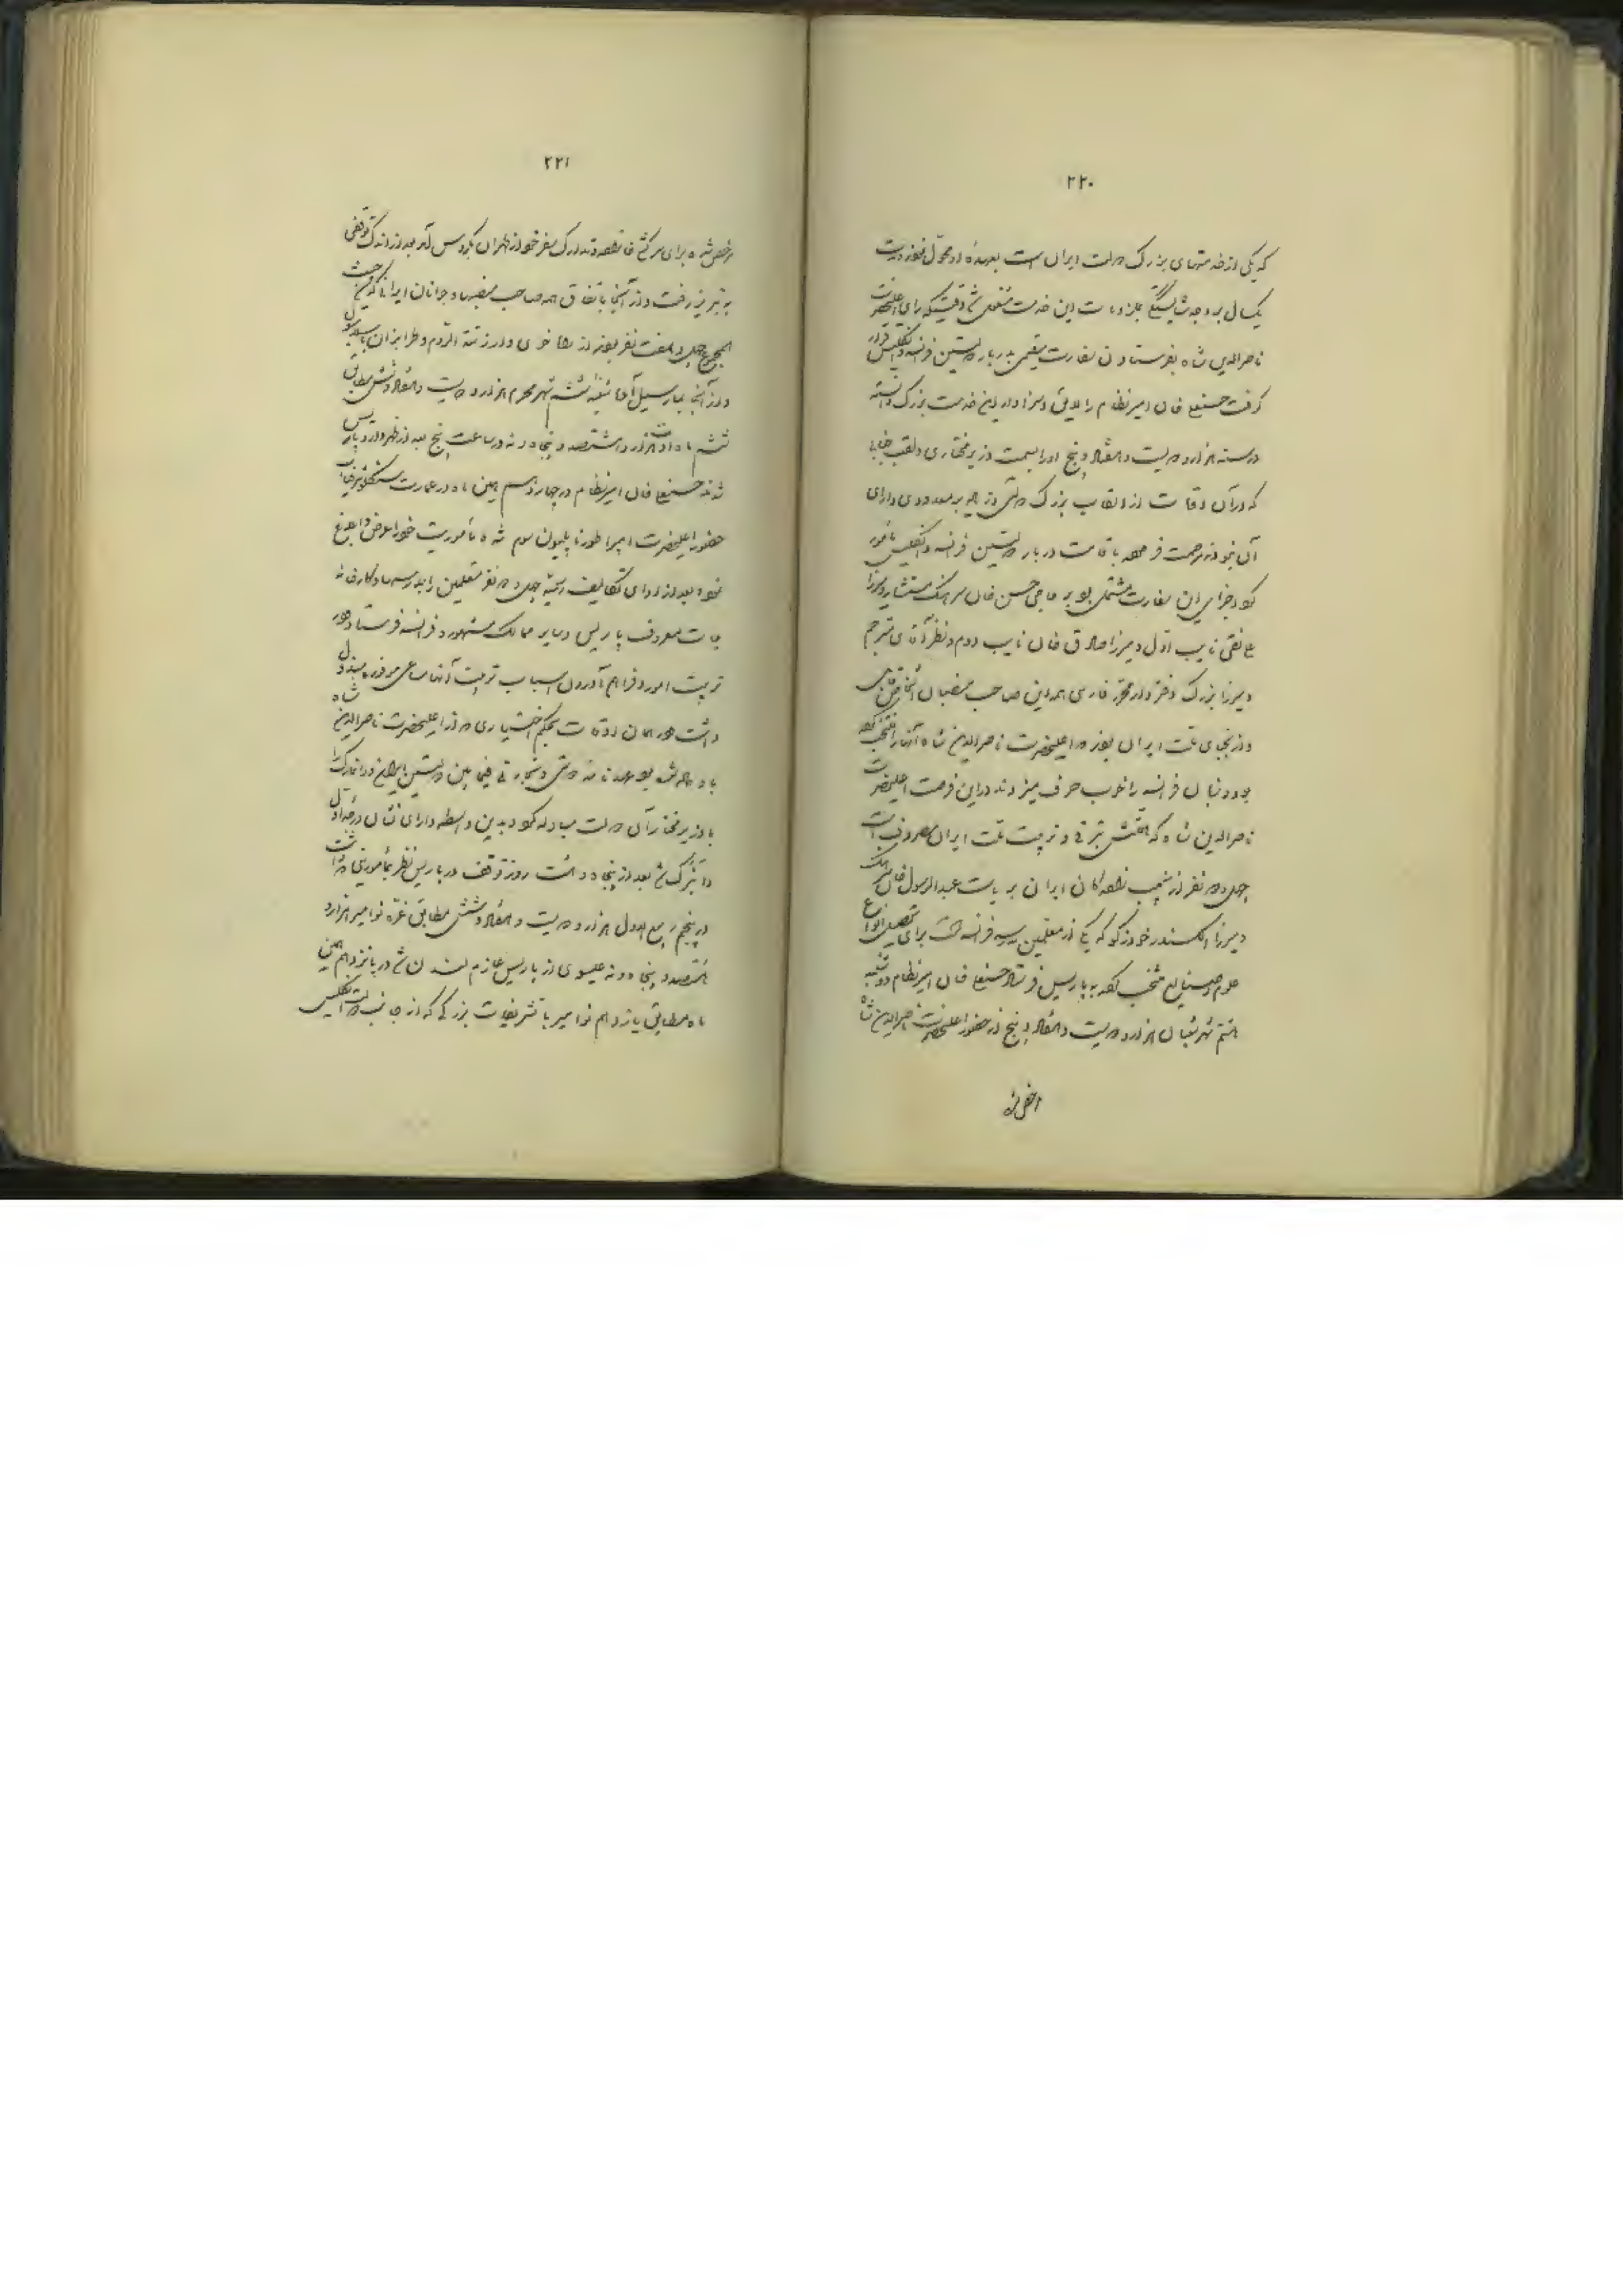 ۲۲۰
که یکی از خدمتهای بزرک دولت ایران است بعهدهٔ او محوّل فرمودند مدت
یک سال بر وجه شایستگی بلوازمات این خدمت مشغول شد وقتیکه رای اعلیحضرت
ناصرالدین شاه بفرستادن سفارت مقیمی بدربار دولتین فرانسه و انکلیس قرار
کرفت حسنعلی خان امیرنظام را لایق و سزاوار این خدمت بزرک دانسته
در سنه هزار و دویست و هفتاد و پنج او را بسمت وزیر مختاری و لقب جنابی
که در آن اوقات از القاب بزرک دولتی و جز بر معدودی دارای
آن نبودند مرحمت فرموده باقامت دربار دولتین فرانسه و انکلیس مأمور
کرد اجزای این سفارت مشتمل بود بر حاجی محسن خان سرهنک مستشار و میرزا
علی نقی نایب اوّل و میرزا صادق خان نایب دوم و نظر آقای مترجم
و میرزا بزرک دفتردار و محرّر فارسی همه این صاحب منصبان اشخاص قابل
و از نجبای ملت ایران بودند و اعلیحضرت ناصرالدین شاه آنها را منتخب کرده
بود و زبان فرانسه را خوب حرف میزدند در این فرصت اعلیحضرت
ناصرالدین شاه که همّتش بترقی و تربیت ملت ایران مصروف است
چهل و دو نفر از نجیب زادهکان ایران بریاست عبدالرسول خان سرهنک
و میرزا الکسندر خودزکو که یکی از معلمین مدرسه فرانسه است برای تحصیل انواع
علوم و صنایع منتخب کرده به پاریس فرستاد حسنعلی خان امیرنظام دوشنبه
هشتم شهر شعبان هزار و دویست و هفتاد و پنج از حضور اعلیحضرت ناصرالدین شاه
مرخص شده
۲۲۱
مرخص شده برای سرکشی خانواده و تدارک سفر خود از طهران بکروس آمد بعد از اندک توقفی
به تبریز رفت و از آنجا باتفاق همه صاحب منصبها و جوانان ایرانی که من حیث
المجموع چهل و هفت نفر بودند از راه خوی و ارزنة الروم و طرابزان باسلامبول
و از آنجا بمارسیل آمد شنبه ششم شهر محرم هزار و دویست و هفتاد و شش مطابق
ششم ماه اوت هزار و هشتصد و پنجاه و نه در ساعت پنج بعد از ظهر وارد پاریس
شدند حسنعلی خان امیرنظام در چهاردهم همین ماه در عمارت سنکلو شرفیاب
حضور اعلیحضرت امپراطور ناپلیون سوم شده مأموریت خود را عرض و ابلاغ
نموده بعد از ادای تکالیف رسمیه چهل و دو نفر متعلمین را بمدرسه‌ها و کارخانه
جات معروف پاریس و سایر ممالک مشهور فرانسه فرستاد و در
تربیت امور و فراهم آوردن اسباب تربیت آنها مساعی موفوره مبذول
داشت در همان اوقات بحکم اختیاری که از اعلیحضرت ناصرالدین شاه
باو داده شده بود عهدنامه دوستی و تجارتی فیمابین دولتین ایران و دانمارک را
با وزیر مختار آن دولت مبادله کرد و بدین واسطه دارای نشان درجهٔ اوّل
دانبرک شد بعد از پنجاه و هشت روز توقف در پاریس نظر بمأموریتی که داشت
در پنجم ربیع الاول هزار و دویست و هفتاد و شش مطابق غرّه نوامبر هزار و
هشتصد و پنجاه و نه عیسوی از پاریس عازم لندن شد در پانزدهم همین
ماه مطابق یازدهم نوامبر با تشریفات بزرکی که از جانب دولت انکلیس